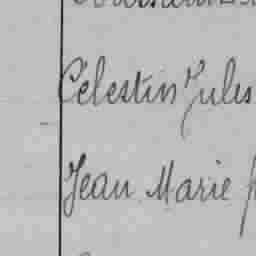 Célestin Jules
Jean Marie